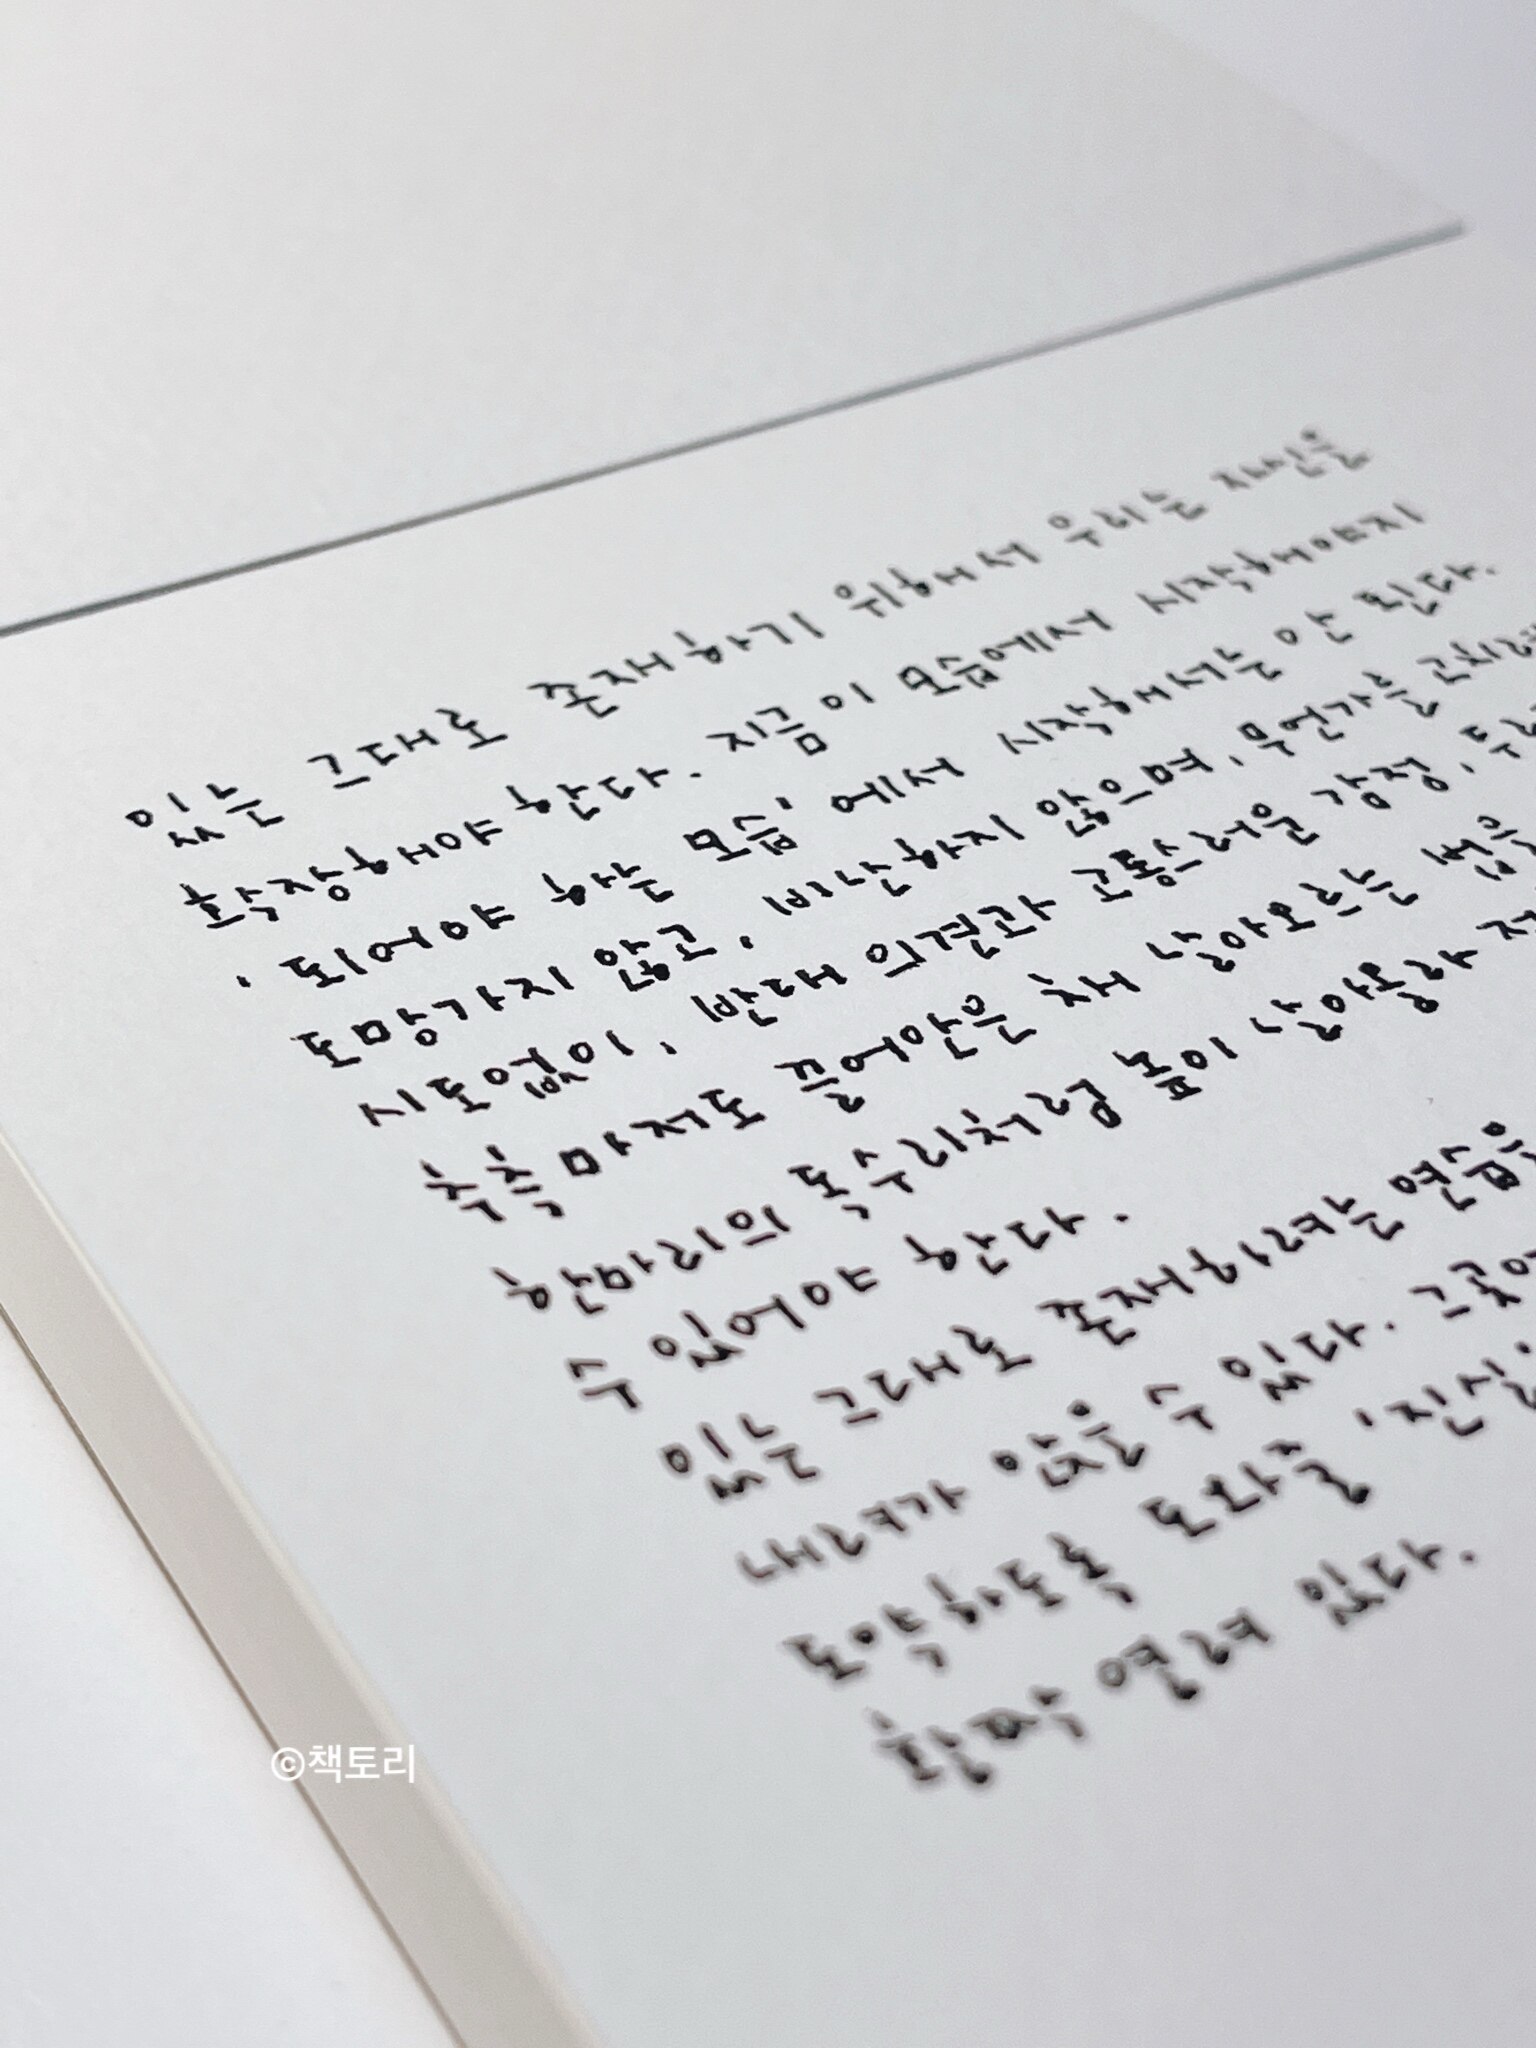 있는 그대로 존재하기 위해서 우리는 자신을
확장해야 한다. 지금 이 모습에서 시작해야지
'되어야 하는 모습'에서 시작해서는 안 된다.
도망가지 않고, 비난하지 않으며, 무언가를
시도없이, 반대 의견과 고통스러운 감정,
추측마저도 끌어안은 채 날아오르는 법을
한마리의 독수리처럼 높이 날아올라
수 있어야 한다.
있는 그대로 존재하려는 연습을
내려가 앉을 수 있다.
도약하도록 도와줄
활짝 열려 있다.
©책토리